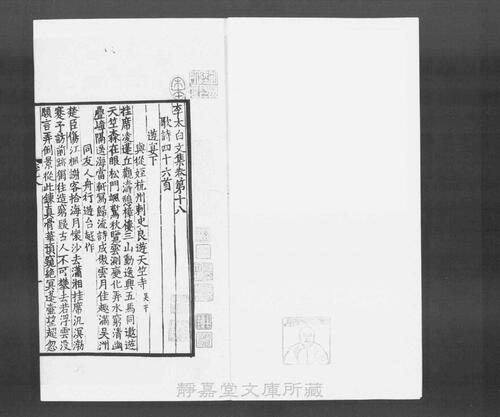 李太白文集卷第十八
歌詩四十六首
遊宴下
與從姪杭州刺史良遊天竺寺
挂席凌蓬丘觀濤憩樟樓三山動逸興五馬同遨遊
天竺森在眼松門颯驚秋覽雲測變化弄水窮清幽
疊嶂隔遥海當軒寫歸流詩成傲雲月佳趣滿吳洲
同友人舟行遊台越作
楚臣傷江楓謝客拾海月懷沙去瀟湘挂席泛溟渤
蹇予訪前跡獨往造窮髮古人不可攀去若浮雲没
願言弄倒景從此鍊真骨華頂窺絶冥蓬壺望超忽
靜嘉堂文庫所藏